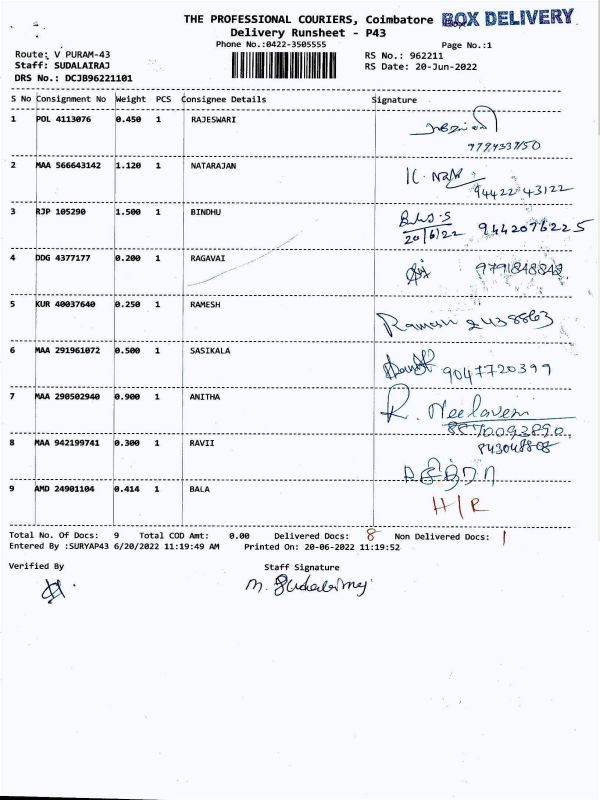 THE PROFESSIONAL COURIERS, Coimbatore BOX DELIVERY
Delivery Runsheet - P43
Phone No.:0422-3505555
Page No.:1
Route: V PURAM-43
RS No.: 962211
Staff: SUDALAIRAJ
RS Date: 20-Jun-2022
DRS No.: DCJB96221101
S No Consignment No Weight PCS Consignee Details Signature
1 POL 4113076 0.450 1 RAJESWARI
2 MAA 566643142 1.120 1 NATARAJAN
94422 43122
3 RJP 105290 1.500 1 BINDHU
20/6/22 9442076225
4 DDG 4377177 0.200 1 RAGAVAI
9791848848
5 KUR 40037640 0.250 1 RAMESH
Ramesh 2438863
6 MAA 291961072 0.500 1 SASIKALA
9047720399
7 MAA 290502940 0.900 1 ANITHA
R. Neelaveni
8870093890
8 MAA 942199741 0.300 1 RAVII
9 AMD 24901104 0.414 1 BALA
H/R
Total No. Of Docs: 9 Total COD Amt: 0.00 Delivered Docs: 8 Non Delivered Docs: 1
Entered By :SURYAP43 6/20/2022 11:19:49 AM Printed On: 20-06-2022 11:19:52
Verified By Staff Signature